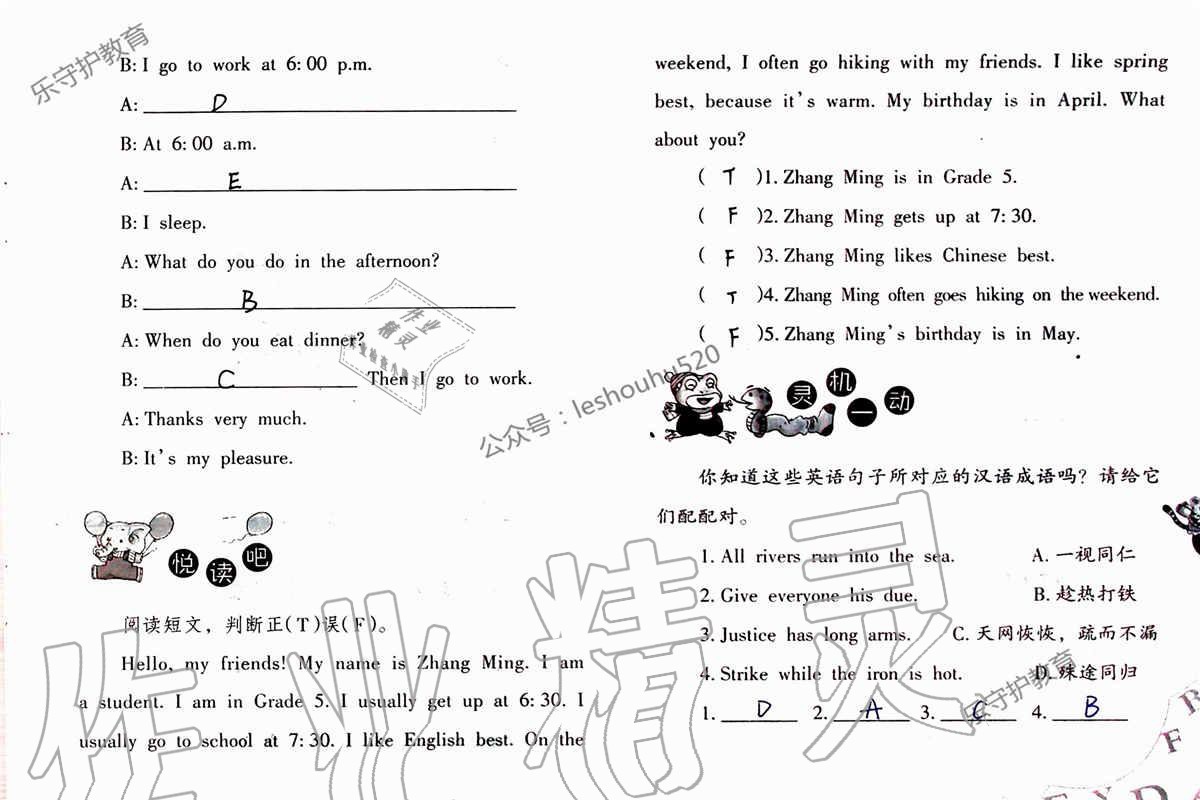 B: I go to work at 6:00 p.m.
A: D
B: At 6:00 a.m.
A: E
B: I sleep.
A: What do you do in the afternoon?
B: B
A: When do you eat dinner?
B: C Then I go to work.
A: Thanks very much.
B: It's my pleasure.
悦读吧
阅读短文，判断正(T)误(F)。
Hello, my friends! My name is Zhang Ming. I am
a student. I am in Grade 5. I usually get up at 6:30. I
usually go to school at 7:30. I like English best. On the
weekend, I often go hiking with my friends. I like spring
best, because it's warm. My birthday is in April. What
about you?
( T )1. Zhang Ming is in Grade 5.
( F )2. Zhang Ming gets up at 7:30.
( F )3. Zhang Ming likes Chinese best.
( T )4. Zhang Ming often goes hiking on the weekend.
( F )5. Zhang Ming's birthday is in May.
灵机一动
你知道这些英语句子所对应的汉语成语吗？请给它
们配配对。
1. All rivers run into the sea. A. 一视同仁
2. Give everyone his due. B. 趁热打铁
3. Justice has long arms. C. 天网恢恢，疏而不漏
4. Strike while the iron is hot. D. 殊途同归
1. D 2. A 3. C 4. B
乐守护教育
公众号：leshouhu520
乐守护教育
作业精灵
作业
精灵
作业检查小助手